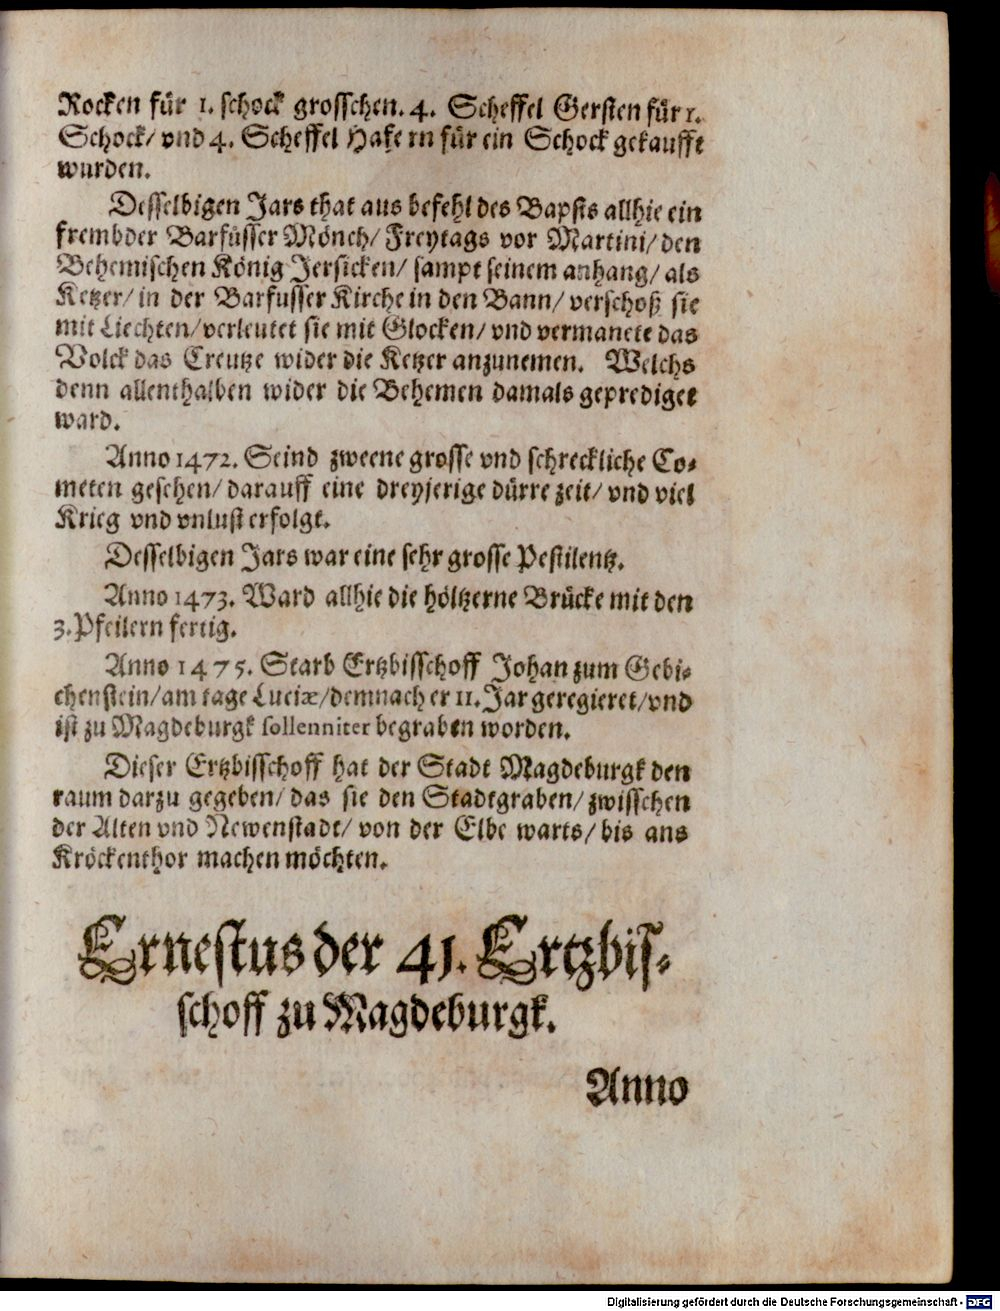 Rocken für 1. schock grosschen. 4. Scheffel Gersten für 1.
Schock/ vnd 4. Scheffel Hafern für ein Schock gekaufft
wurden.
Desselbigen Jars that aus befehl des Bapsts allhie ein
frembder Barfüsser Mönch/ Freytags vor Martini/ den
Behemischen König Jersicken/ sampt seinem anhang/ als
Ketzer/ in der Barfusser Kirche in den Bann/ verschoß sie
mit Liechten/ verleutet sie mit Glocken/ vnd vermanete das
Volck das Creutze wider die Ketzer anzunemen. Welchs
denn allenthalben wider die Behemen damals geprediget
ward.
Anno 1472. Seind zweene grosse vnd schreckliche Co-
meten gesehen/ darauff eine dreyjerige dürre zeit/ vnd viel
Krieg vnd vnlust erfolgt.
Desselbigen Jars war eine sehr grosse Pestilentz.
Anno 1473. Ward allhie die höltzerne Brücke mit den
3. Pfeilern fertig.
Anno 1475. Starb Ertzbisschoff Johan zum Gebi-
chenstein/ am tage Luciæ/ demnach er 11. Jar geregieret/ vnd
ist zu Magdeburgk sollenniter begraben worden.
Dieser Ertzbisschoff hat der Stadt Magdeburgk den
raum darzu gegeben/ das sie den Stadtgraben/ zwisschen
der Alten vnd Newenstadt/ von der Elbe warts/ bis ans
Kröckenthor machen möchten.
Ernestus der 41. Ertzbis-
schoff zu Magdeburgk.
Anno
Digitalisierung gefördert durch die Deutsche Forschungsgemeinschaft - DFG